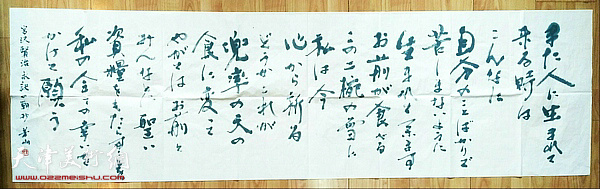 また人に生まれて
来る時は
こんなに
自分のことばかりで
苦しまないように
生まれて来ます
お前が食べる
この二椀の雪に
私は今
心から祈る
どうかこれが
兜率の天の
食に変って
やがてはお前と
みんなに聖い
資糧をもたらすことを
私の全ての幸いを
かけて願う
宮沢賢治 永訣の朝抄
天津美术网
www.022meishu.com